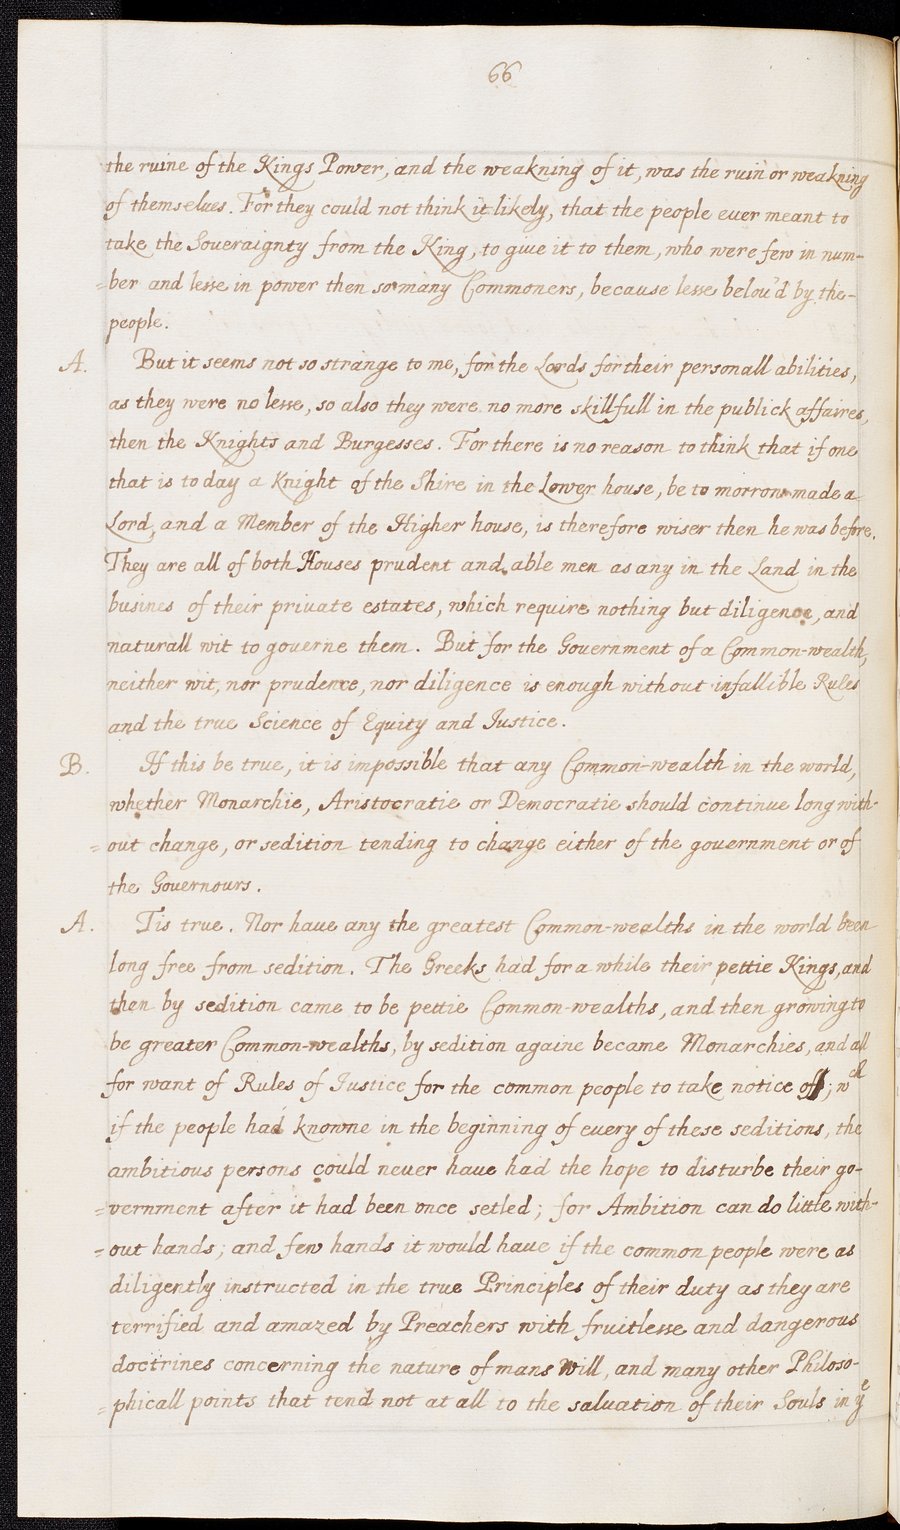 66
the ruine of the Kings Power, and the weakning of it, was the ruin or weakning
of themselues. For they could not think it likely, that the people euer meant to
take the Soueraignty from the King, to giue it to them, who were few in num-
=ber and lesse in power then so many Commoners, because lesse belou'd by the-
people.
A. But it seems not so strange to me, for the Lords for their personall abilities,
as they were no lesse, so also they were no more skillfull in the publick affaires,
then the Knights and Burgesses. For there is no reason to think that if one
that is to day a Knight of the Shire in the Lower house, be to morrow made a
Lord, and a Member of the Higher house, is therefore wiser then he was before.
They are all of both Houses prudent and able men as any in the Land in the
busines of their priuate estates, which require nothing but diligence, and
naturall wit to gouerne them. But for the Gouernment of a Common-wealth,
neither wit, nor prudence, nor diligence is enough without infallible Rules
and the true Science of Equity and Justice.
B. If this be true, it is impossible that any Common-wealth in the world,
whether Monarchie, Aristocratie or Democratie should continue long with-
=out change, or sedition tending to change either of the gouernment or of
the Gouernours.
A. Tis true. Nor haue any the greatest Common-wealths in the world been
long free from sedition. The Greeks had for a while their pettie Kings, and
then by sedition came to be pettie Common-wealths, and then growing to
be greater Common-wealths, by sedition againe became Monarchies, and all
for want of Rules of Justice for the common people to take notice of; wch
if the people had knowne in the beginning of euery of these seditions, the
ambitious persons could neuer haue had the hope to disturbe their go-
=vernment after it had been once setled; for Ambition can do little with-
=out hands; and few hands it would haue if the common people were as
diligently instructed in the true Principles of their duty as they are
terrified and amazed by Preachers with fruitlesse and dangerous
doctrines concerning the nature of mans Will, and many other Philoso-
=phicall points that tend not at all to the saluation of their Souls in ye